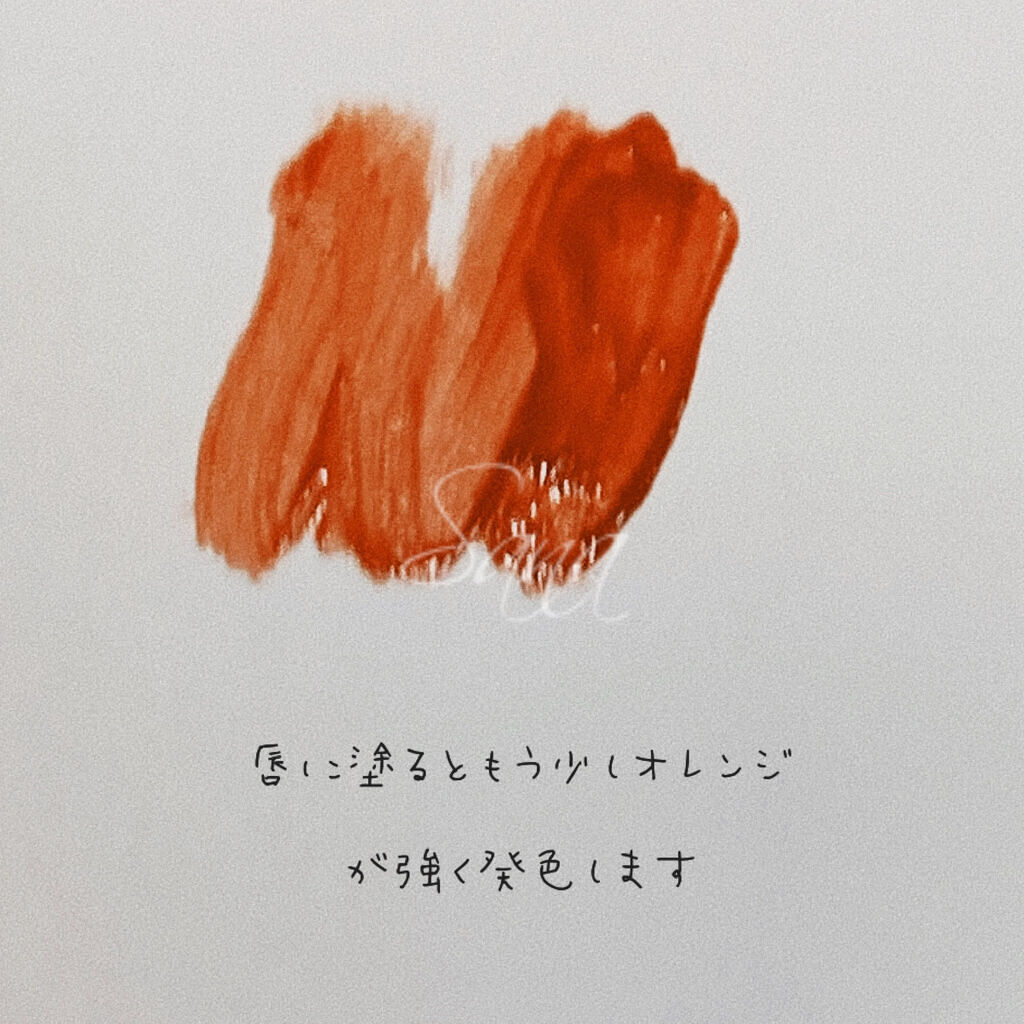 唇に塗るともう少しオレンジ
が強く発色します